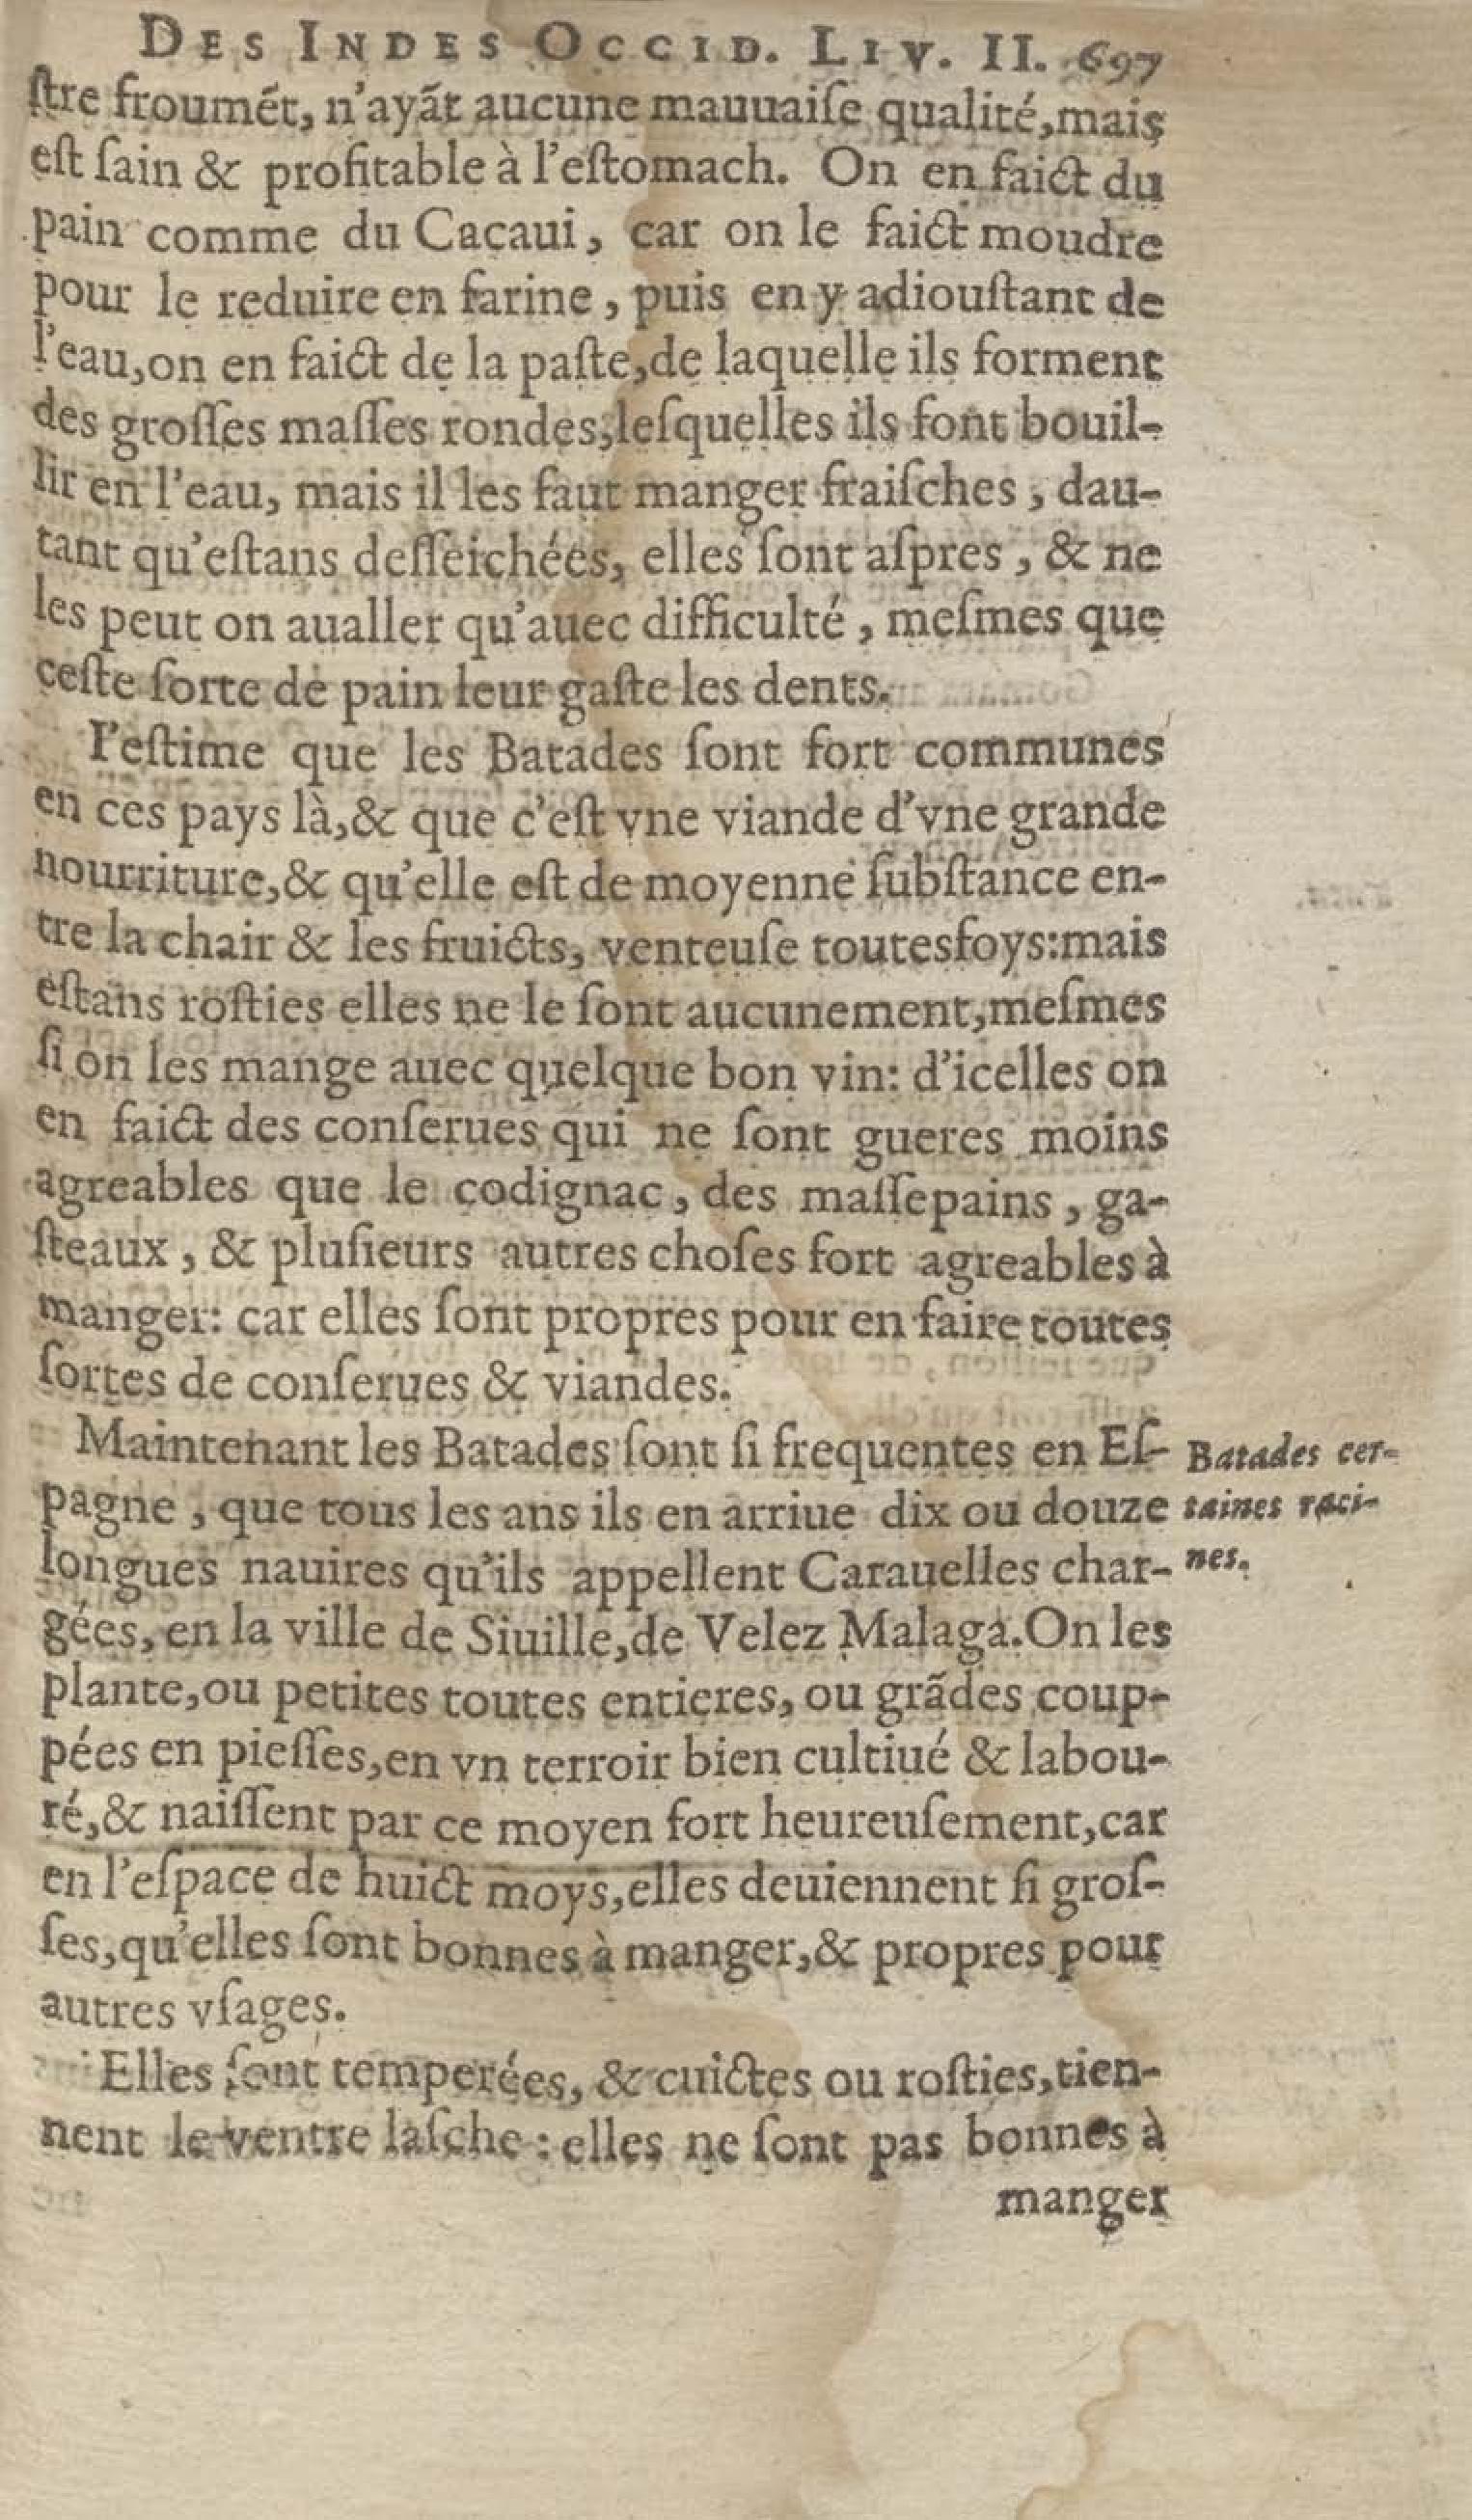 DES INDES OCCID. LIV. II. 697
ſtre froumẽt, n'ayãt aucune mauuaiſe qualité, mais
eſt ſain & profitable à l'eſtomach. On en faict du
pain comme du Caçaui, car on le faict moudre
pour le reduire en farine, puis en y adiouſtant de
l'eau, on en faict de la paſte, de laquelle ils forment
des groſſes maſſes rondes, leſquelles ils font bouil-
lir en l'eau, mais il les faut manger fraiſches, dau-
tant qu'eſtans deſſeichées, elles ſont aſpres, & ne
les peut on aualler qu'auec difficulté, meſmes que
ceſte ſorte de pain leur gaſte les dents.
I'eſtime que les Batades ſont fort communes
en ces pays là, & que c'eſt vne viande d'vne grande
nourriture, & qu'elle eſt de moyenne ſubſtance en-
tre la chair & les fruicts, venteuſe toutesfoys: mais
eſtans roſties elles ne le ſont aucunement, meſmes
ſi on les mange auec quelque bon vin: d'icelles on
en faict des conſerues qui ne ſont gueres moins
agreables que le codignac, des maſſepains, ga-
ſteaux, & pluſieurs autres choſes fort agreables à
manger: car elles ſont propres pour en faire toutes
ſortes de conſerues & viandes.
Maintenant les Batades ſont ſi frequentes en Eſ-
pagne, que tous les ans ils en arriue dix ou douze
longues nauires qu'ils appellent Carauelles char-
gées, en la ville de Siuille, de Velez Malaga. On les
plante, ou petites toutes entieres, ou grãdes coup-
pées en pieſſes, en vn terroir bien cultiué & labou-
ré, & naiſſent par ce moyen fort heureuſement, car
en l'eſpace de huict moys, elles deuiennent ſi groſ-
ſes, qu'elles ſont bonnes à manger, & propres pour
autres vſages.
Elles ſont temperées, & cuictes ou roſties, tien-
nent le ventre laſche: elles ne ſont pas bonnes à
manger
Batades cer-
taines raci-
nes.